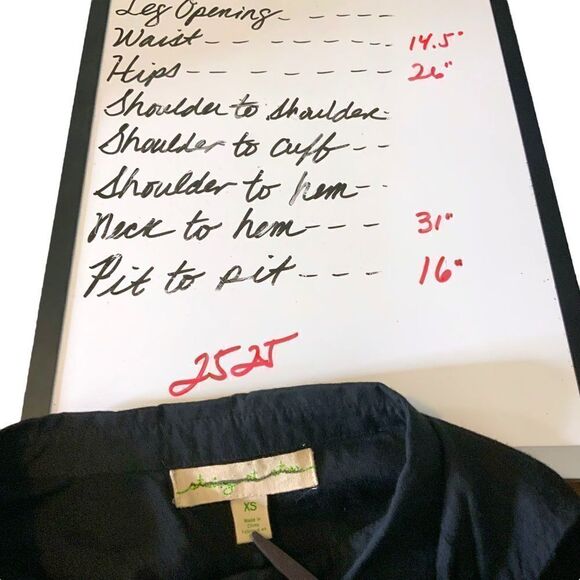 Leg Opening - - - - -
Waist - - - - - - - 14.5"
Hips - - - - - - - 26"
Shoulder to shoulder -
Shoulder to cuff - -
Shoulder to hem - -
Neck to hem - - - - 31"
Pit to pit - - - - 16"
2525
XS
Made in
China